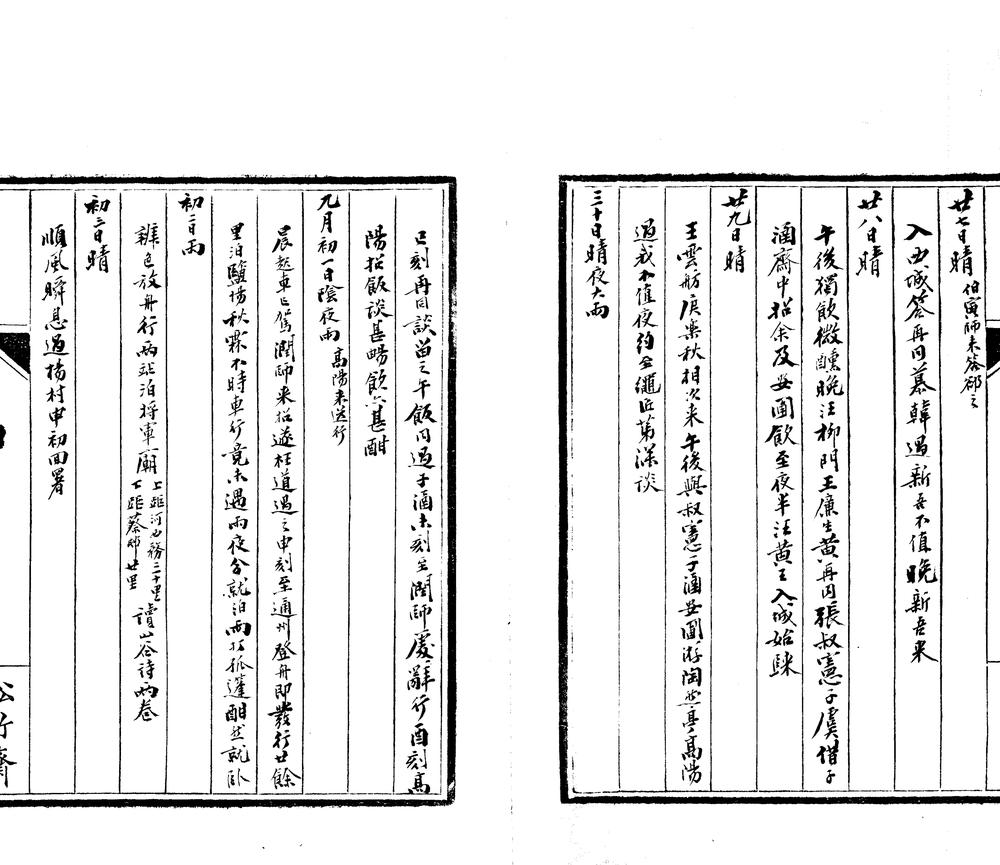 廿七日晴 伯寅師未答郄之
入西城答再同慕韓過新吾不值晚新吾来
廿八日晴
午後獨飲微醺晚汪柳門王廉生黄再同張叔憲子虞借子
涵齋中招余及安圃飲至夜半汪黄王入城始睐
廿九日晴
王雲舫戾樂秋相次来午後與叔憲子涵安圃游陶然亭高陽
過我不值夜約至繩匠第深談
三十日晴夜大雨
巳刻再同談留之午飯同過子涵未刻至潤師處辭行酉刻高
陽招飯談甚暢飲六甚酣
九月初一日陰夜雨 高陽来送行
晨起車已駕潤師来招遂枉道過之申刻至通州登舟即發行廿餘
里泊鹽場秋霖不時車行竟未遇雨夜分就泊雨打孤篷酣然就卧
初二日雨
辨色放舟行兩站泊将軍廟 上距河西務三十里 下距蔡邨廿里 讀山谷詩兩卷
初三日晴
順風瞬息過楊村申初回署
竹齋